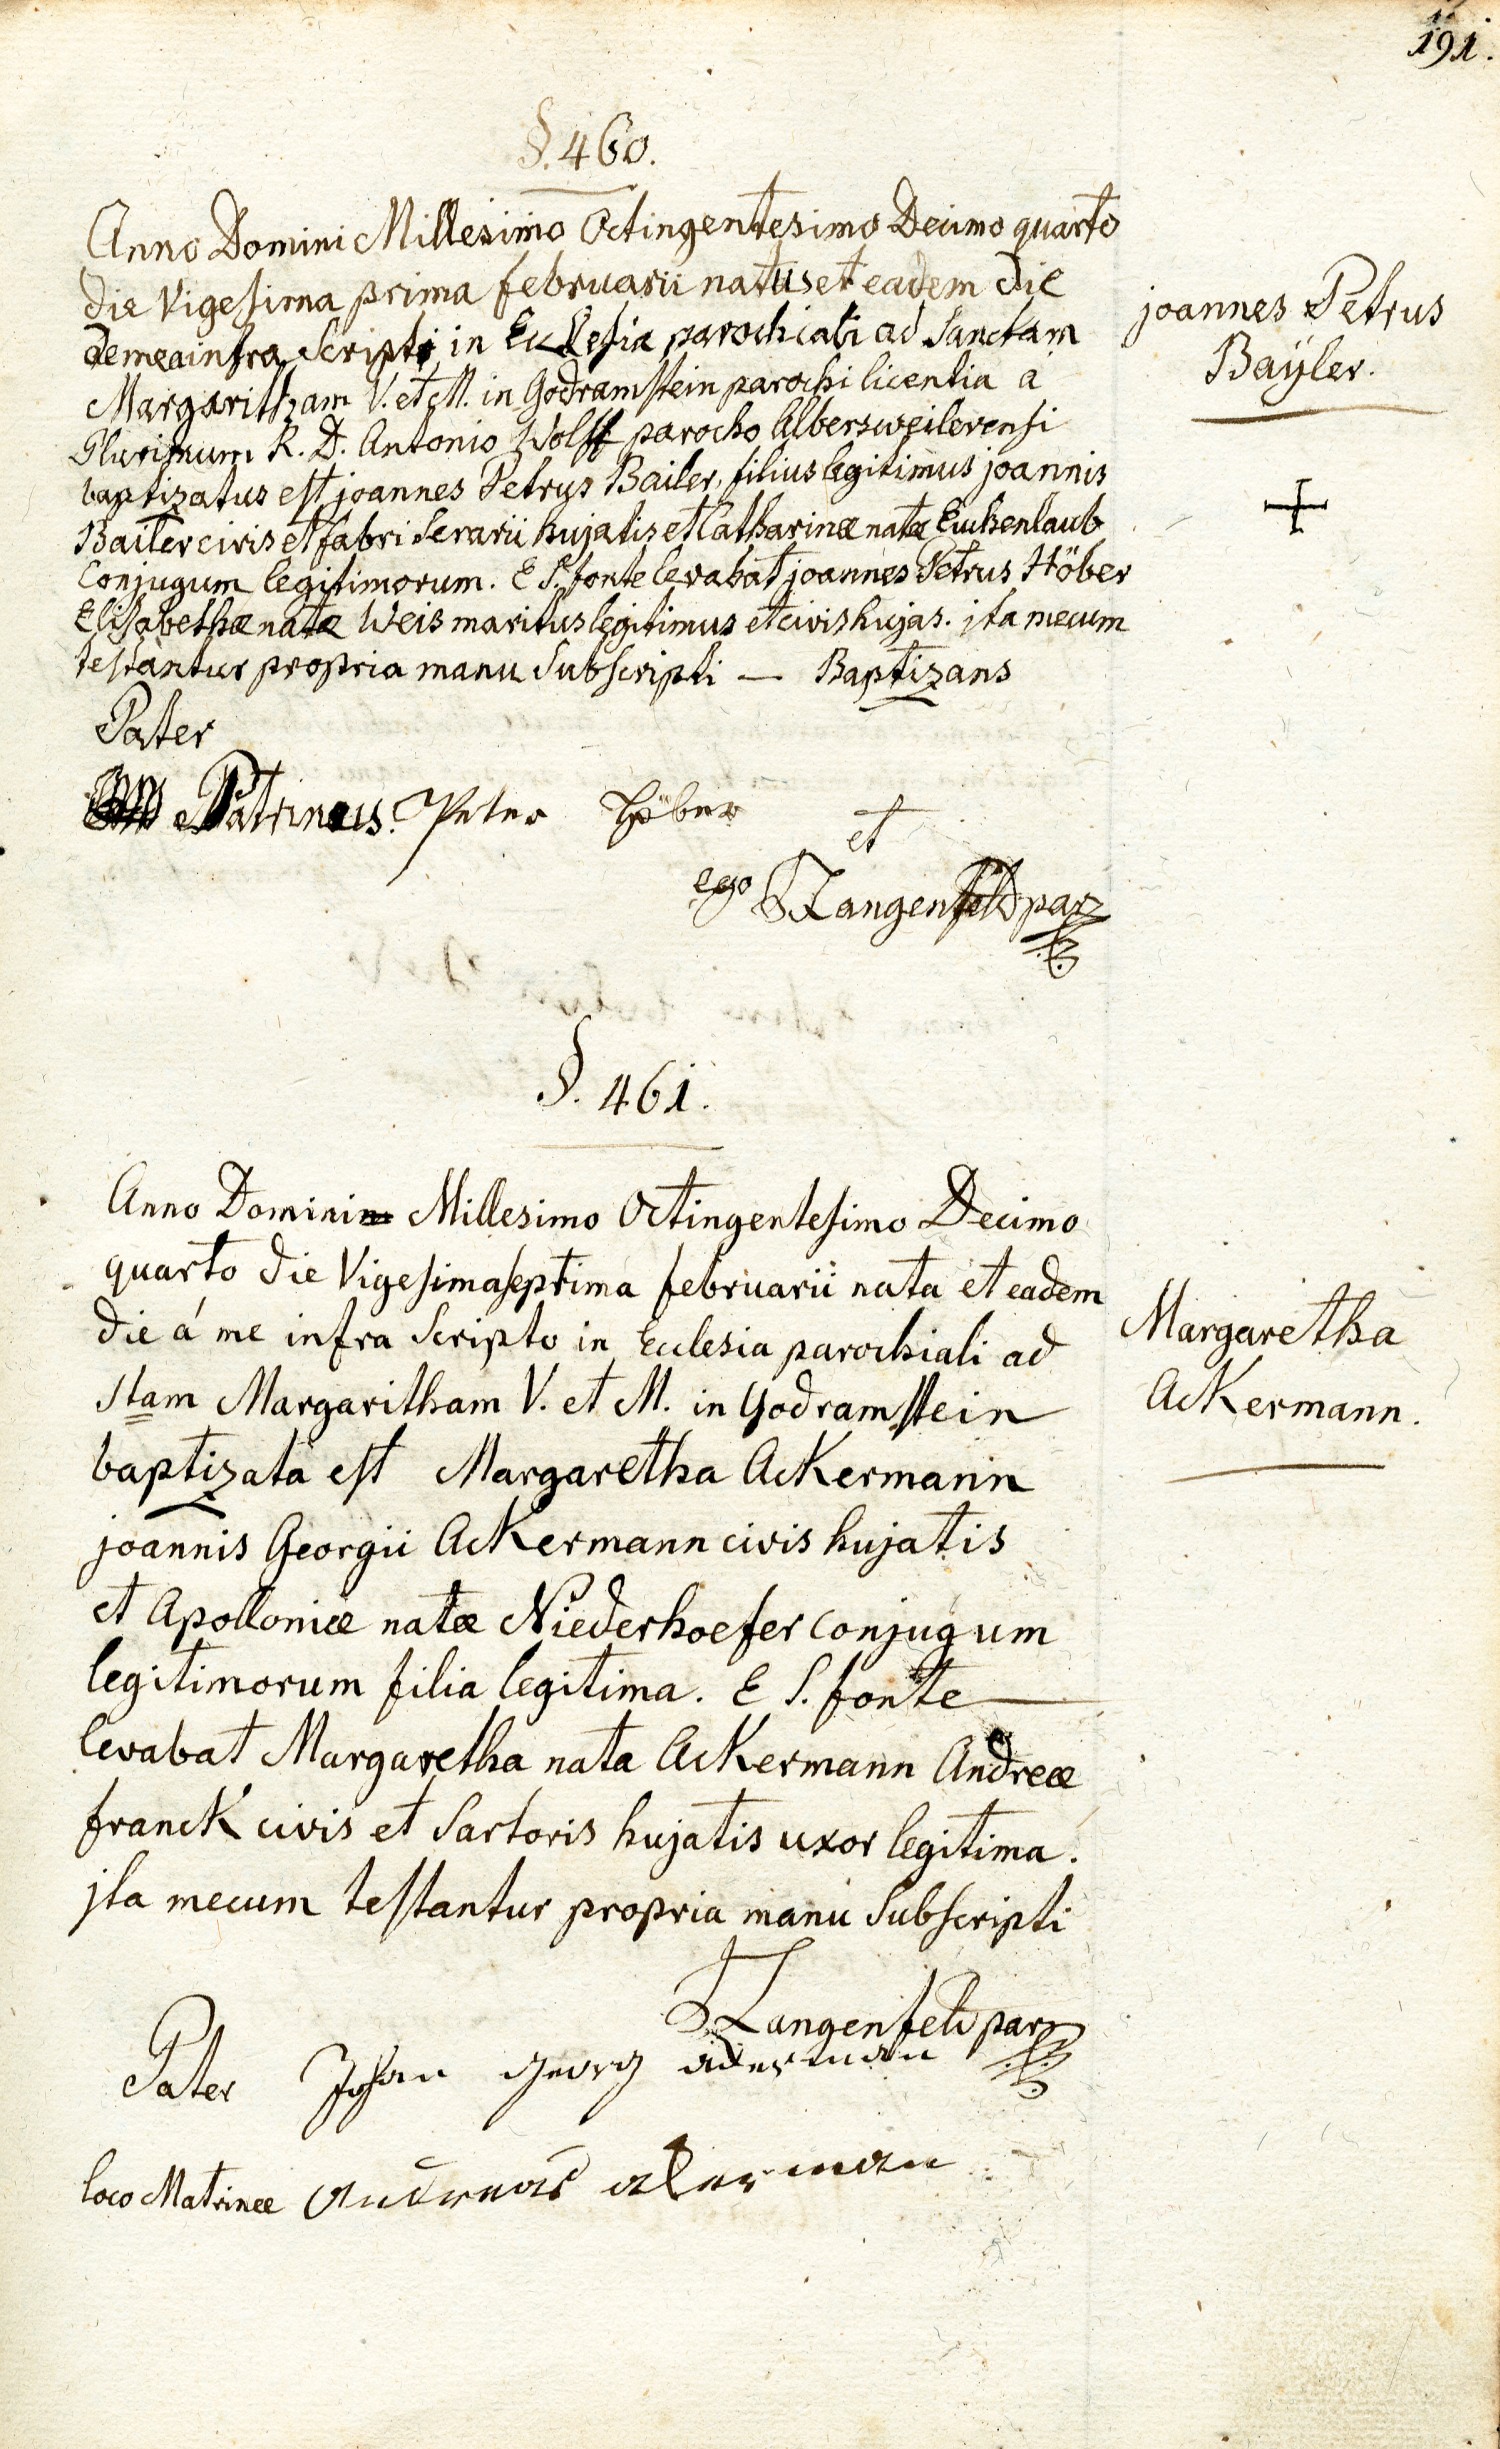 191.
§. 460.
Anno Domini Millesimo Octingentesimo Decimo quarto
die Vigesima prima februarii natus et eadem die
de mea infra Scripti in Ecclesia parochiali ad Sanctam
Margaritham V. et M. in Godramstein parochi licentia a
Plurimum R. D. Antonio Wolff parocho Albersweilerensi
baptizatus est joannes Petrus Bailer, filius legitimus joannis
Bailer civis et fabri Serarii hujatis et Catharinæ natæ Euckenlaub
Conjugum legitimorum. E S. fonte levabat joannes Petrus Höber
Elisabethæ natæ Weis maritus legitimus et civis hujas. jta mecum
testantur propria manu Subscripti — Baptizans
Pater
Patrinus. Peter Höber
et
ego Langenfeld par
joannes Petrus
Baÿler.
§. 461.
Anno Domini Millesimo Octingentesimo Decimo
quarto die Vigesima septima februarii nata et eadem
die á me infra Scripto in Ecclesia parochiali ad
Stam Margaritham V. et M. in Godramstein
baptizata est Margaretha Ackermann
joannis Georgii Ackermann civis hujatis
et Apolloniæ natæ Niederhoefer Conjugum
legitimorum filia legitima. E S. fonte
levabat Margaretha nata Ackermann Andreæ
franck civis et Sartoris hujatis uxor legitima.
jta mecum testantur propria manu Subscripti
Langenfeld par
Pater Johan Georg akerman
loco Matrinæ Andreas akerman
Margaretha
Ackermann.